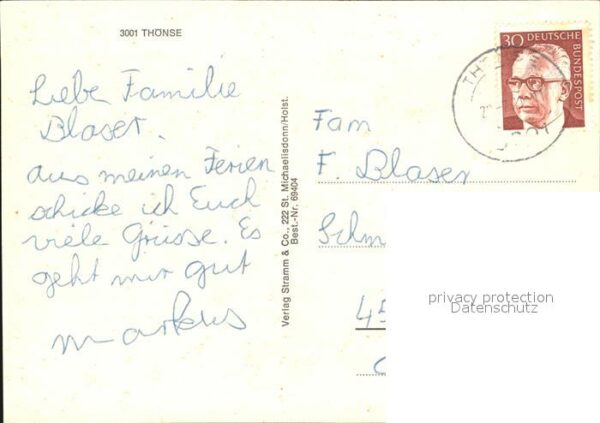 3001 THÖNSE
Liebe Familie
Blaser.
aus meinen Ferien
schicke ich Euch
viele Grüsse. Es
geht mir gut
markus
Verlag Stramm & Co., 222 St. Michaelisdonn/Holst.
Best.-Nr. 69404
30 DEUTSCHE
BUNDESPOST
Fam
F. Blaser
privacy protection
Datenschutz